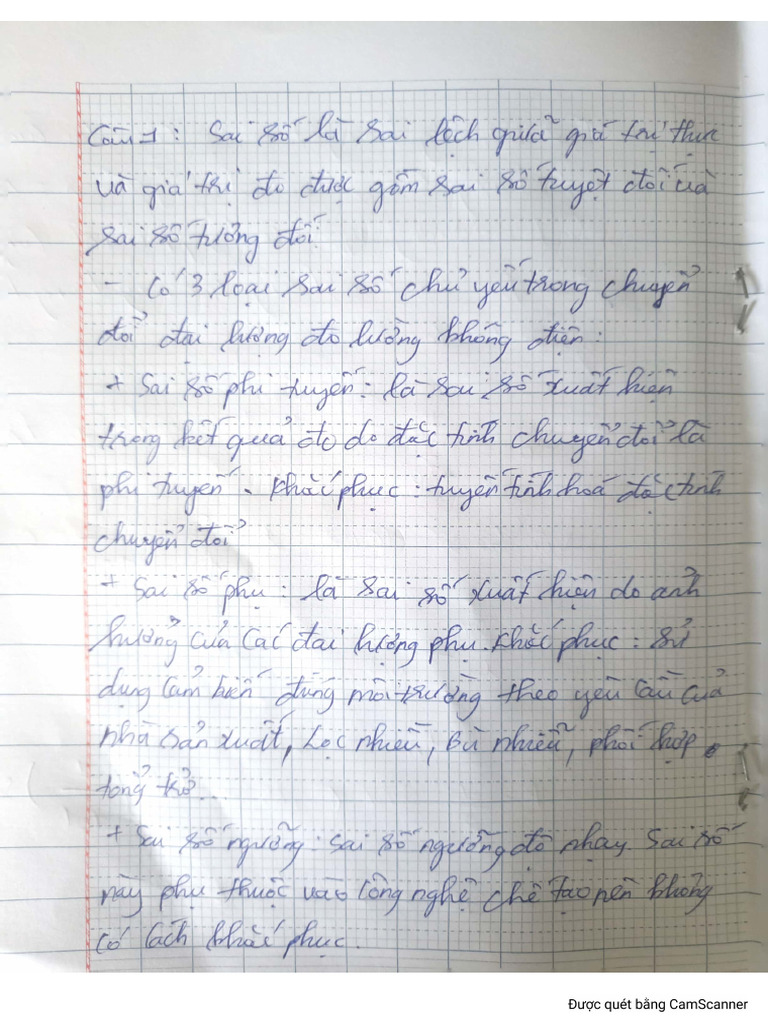 Câu 1: Sai số là sai lệch giữa giá trị thực
và giá trị đo được gồm sai số tuyệt đối và
sai số tương đối.
- Có 3 loại sai số chủ yếu trong chuyển
đổi đại lượng đo lường không điện:
+ Sai số phi tuyến: là sai số xuất hiện
trong kết quả đo do đặc tính chuyển đổi là
phi tuyến. Khắc phục: tuyến tính hoá đặc tính
chuyển đổi
+ Sai số phụ: là sai số xuất hiện do ảnh
hưởng của các đại lượng phụ. Khắc phục: sử
dụng cảm biến đúng môi trường theo yêu cầu của
nhà sản xuất, Lọc nhiễu, Bù nhiễu, phối hợp
tổng trở...
+ Sai số ngưỡng: sai số ngưỡng độ nhạy. Sai số
này phụ thuộc vào công nghệ chế tạo nên không
có cách khắc phục.
Được quét bằng CamScanner